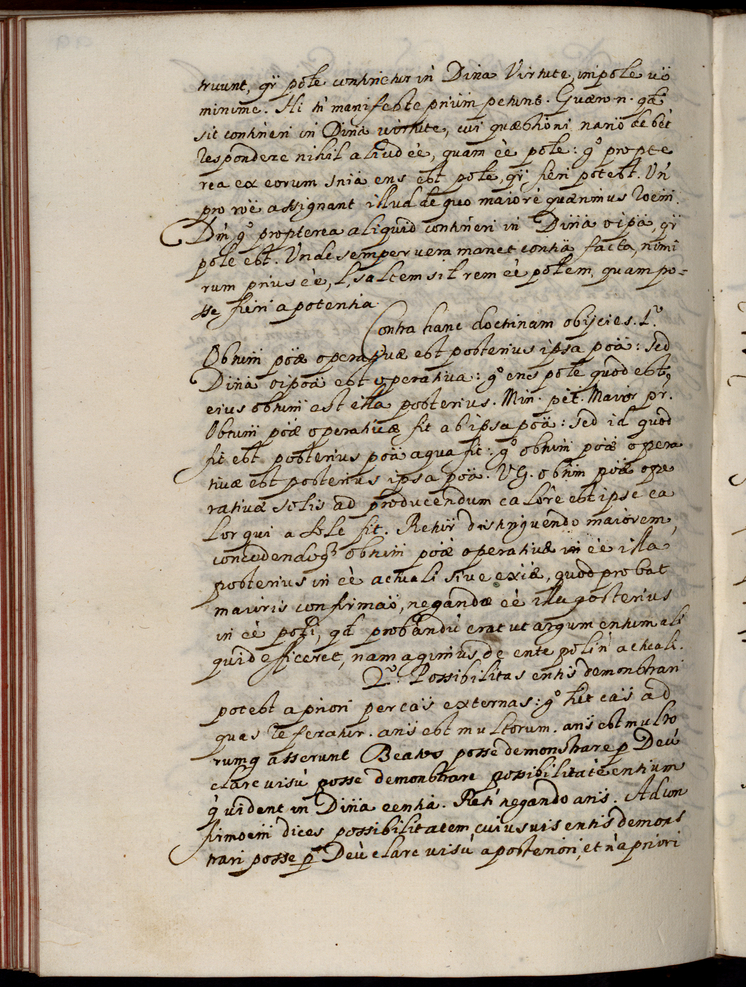 truunt, qr̃ põle continetur in Dĩna Virtute, impõle uõ
minime. Hi tñ manifeste prĩum petunt. Quæro n. qd̃
sit contineri in Dĩna uirtute, cui quæstioni nariõ debẽt
respondere nihil aliud ẽe, quam ẽe põle: gº propte
rea ex eorum snĩa ens est põle, qr̃ fieri potest. Uñ
pro rõe assignant illud de quo maiorẽ quærimus rõem.
Dm̃ gº propterea aliquid contineri in Dĩna oĩpã, qr̃
põle est. Unde semper uera manet cont̃ia facta, nimi
rum prius ẽe, l. saltem sil̃ rem ẽe põlem, quam po-
sse fieri a potentia.
Contra hanc doctrinam obijcies. 1.º
Obtum põæ operatiuæ est posterius ipsa põã: sed
Dĩna oĩpõa est operatiua: gº ens põle quod est
eius obtum est illa posterius. Min. pẽt. Maior pr.
Obtum põæ operatiuæ fit ab ipsa põã: sed id quod
fit est posterius põã a qua fit: gº obtum põæ opera
tiuæ est posterius ipsa põã. V.G. obtm põæ ope
ratiuæ solis ad producendum calorẽ est ipse ca
lor qui a sole fit. Rẽtur distinguendo maiorem,
concedendoq̃ obtum põæ operatiuæ in ẽe illa
posterius in ẽe actuali siue exĩæ, quod probat
maioris confirmaõ, negandõ ẽe illa posterius
in ẽe põli, qd̃ probandũ erat ut argumentum ali
quid efficeret, nam agimus de ente põli ñ actuali.
2.º Possibilitas entis demonstrari
potest a priori per cãs externas: gº hẽt cãs ad
quas referatur. añs est multorum. añs est multo
rumq̃ asserunt Beatos posse demonstrare p Deũ
clare uisũ posse demonstrare possibilitatẽ entium
q̃ uident in Dĩna eentia. Rẽti negando añs. Ad con
firmõem dices possibilitatem cuiusuis entis demons
trari posse p Deũ clare uisũ a posteriori, et ñ a priori